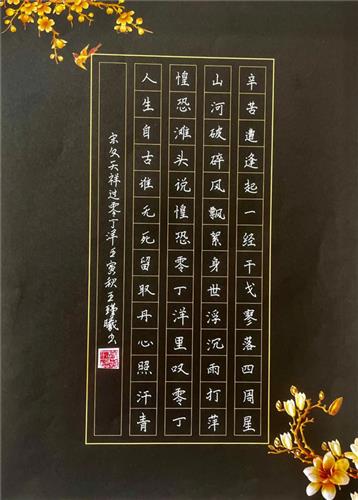 辛苦遭逢起一经干戈寥落四周星
山河破碎风飘絮身世浮沉雨打萍
惶恐滩头说惶恐零丁洋里叹零丁
人生自古谁无死留取丹心照汗青
宋文天祥过零丁洋壬寅秋王曦书